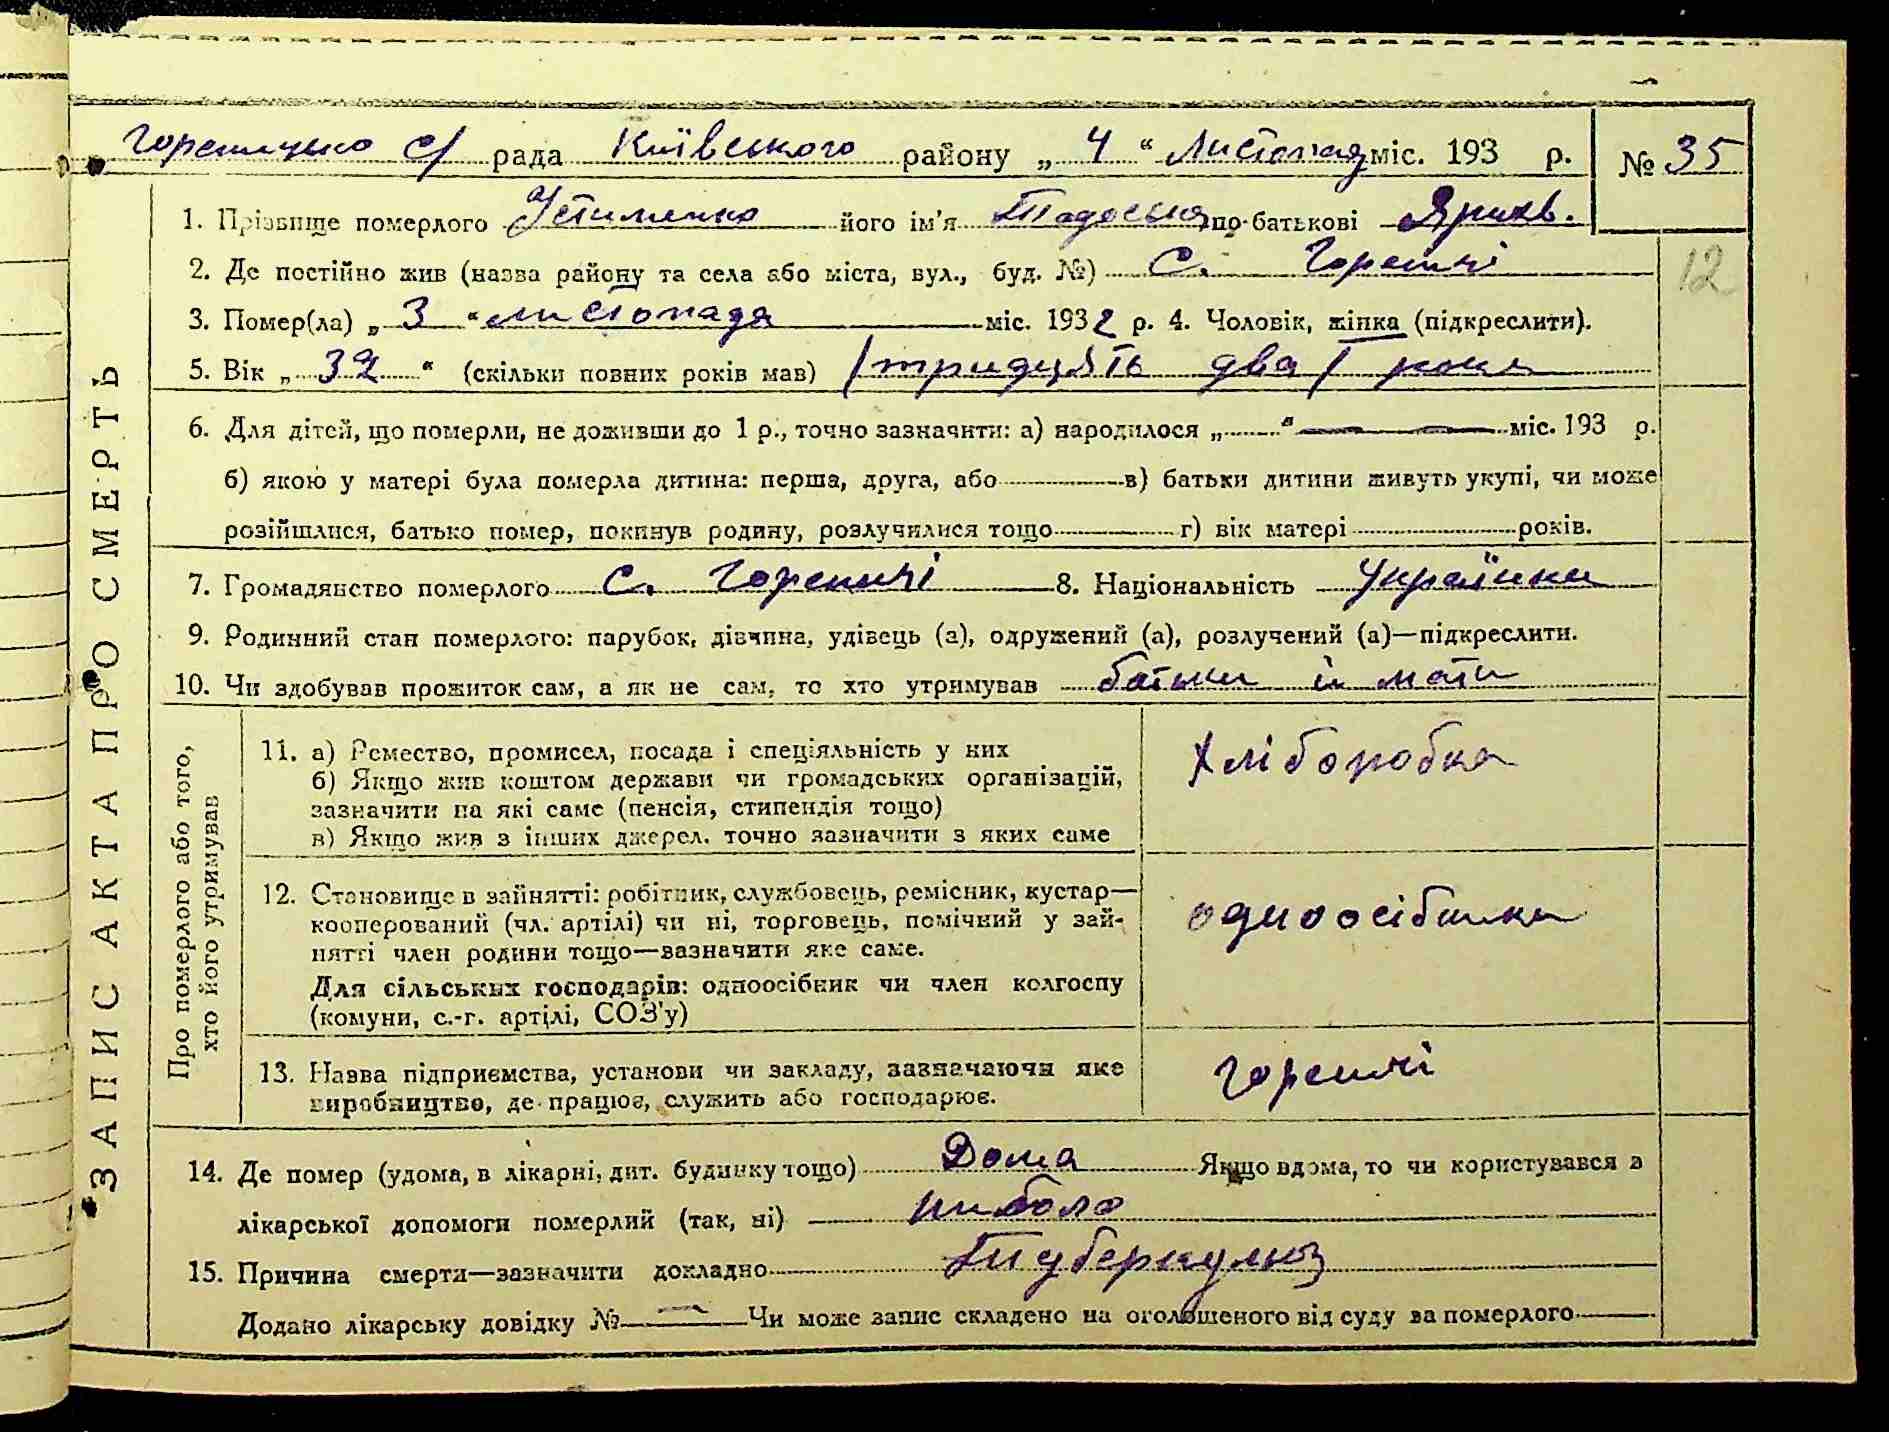 Гореницька с/ рада Київського району „ 4 “ Листопад міс. 193 р. № 35
1. Прізвище померлого Устименко його ім'я Тадоська по-батькові
2. Де постійно жив (назва району та села або міста, вул., буд. №) С. Гореничі
12
3. Помер(ла) „ 3 “ листопада міс. 1932 р. 4. Чоловік, жінка (підкреслити).
5. Вік „ 32 “ (скільки повних років мав) /тридцять два/ роки
6. Для дітей, що померли, не доживши до 1 р., точно зазначити: а) народилося „ “ міс. 193 р.
б) якою у матері була померла дитина: перша, друга, або в) батьки дитини живуть укупі, чи може
розійшлися, батько помер, покинув родину, розлучилися тощо г) вік матері років.
7. Громадянство померлого С. Гореничі 8. Національність Українка
9. Родинний стан померлого: парубок, дівчина, удівець (а), одружений (а), розлучений (а)—підкреслити.
10. Чи здобував прожиток сам, а як не сам, то хто утримував батьки й мати
ЗАПИС АКТА ПРО СМЕРТЬ
Про померлого або того,
хто його утримував
11. а) Ремество, промисел, посада і спеціяльність у них
б) Якщо жив коштом держави чи громадських організацій,
зазначити на які саме (пенсія, стипендія тощо)
в) Якщо жив з інших джерел, точно зазначити з яких саме
хліборобка
12. Становище в зайнятті: робітник, службовець, ремісник, кустар—
кооперований (чл. артілі) чи ні, торговець, помічний у зай-
нятті член родини тощо—вазначити яке саме.
Для сільських господарів: одноосібник чи член колгоспу
(комуни, с.-г. артілі, СОЗ'у)
одноосібника
13. Назва підприємства, установи чи закладу, зазначаючи яке
виробництво, де працює, служить або господарює.
Гореничі
14. Де помер (удома, в лікарні, дит. будинку тощо) Дома Якщо вдома, то чи користувався з
лікарської допомоги померлий (так, ні)
15. Причина смерти—зазначити докладно Туберкульоз
Додано лікарську довідку № Чи може запис складено на оголошеного від суду за померлого